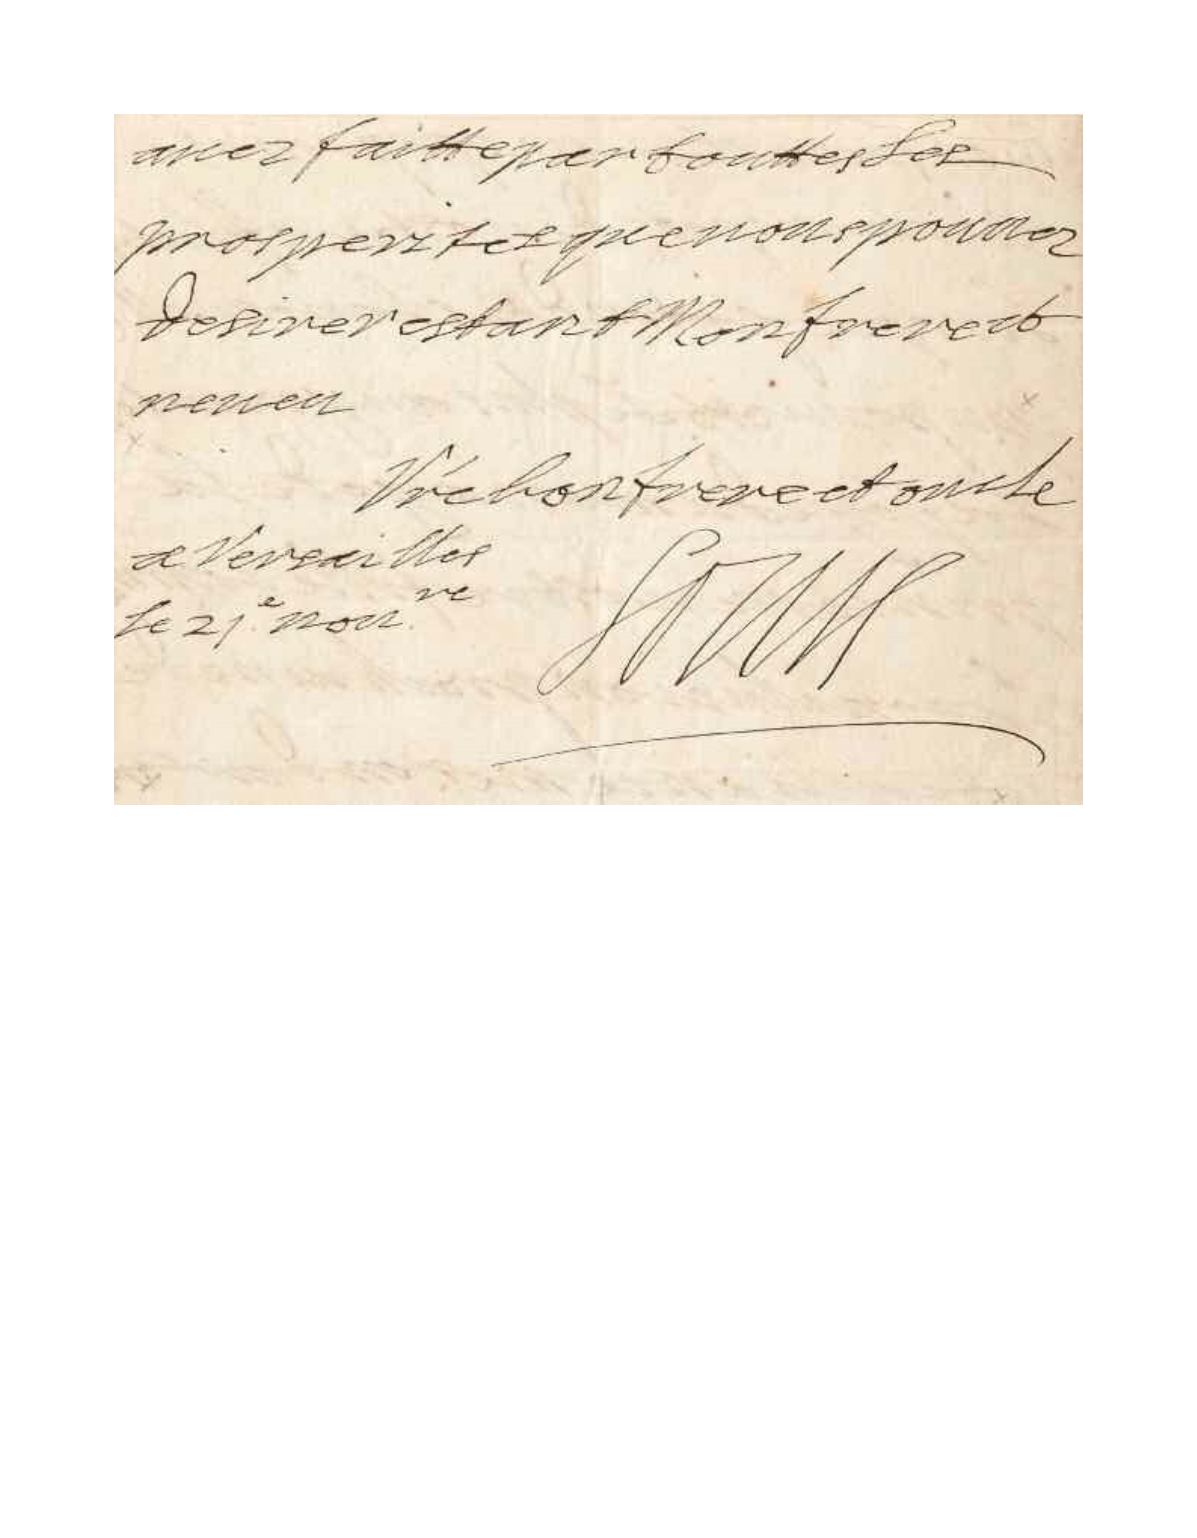 avez faitte par touttes Les
prosperitez que vous pouvez
Desirer estant Mon frere et
neveu
Vré bon frere et oncle
a Versailles
le 21.e nov.re
Louis